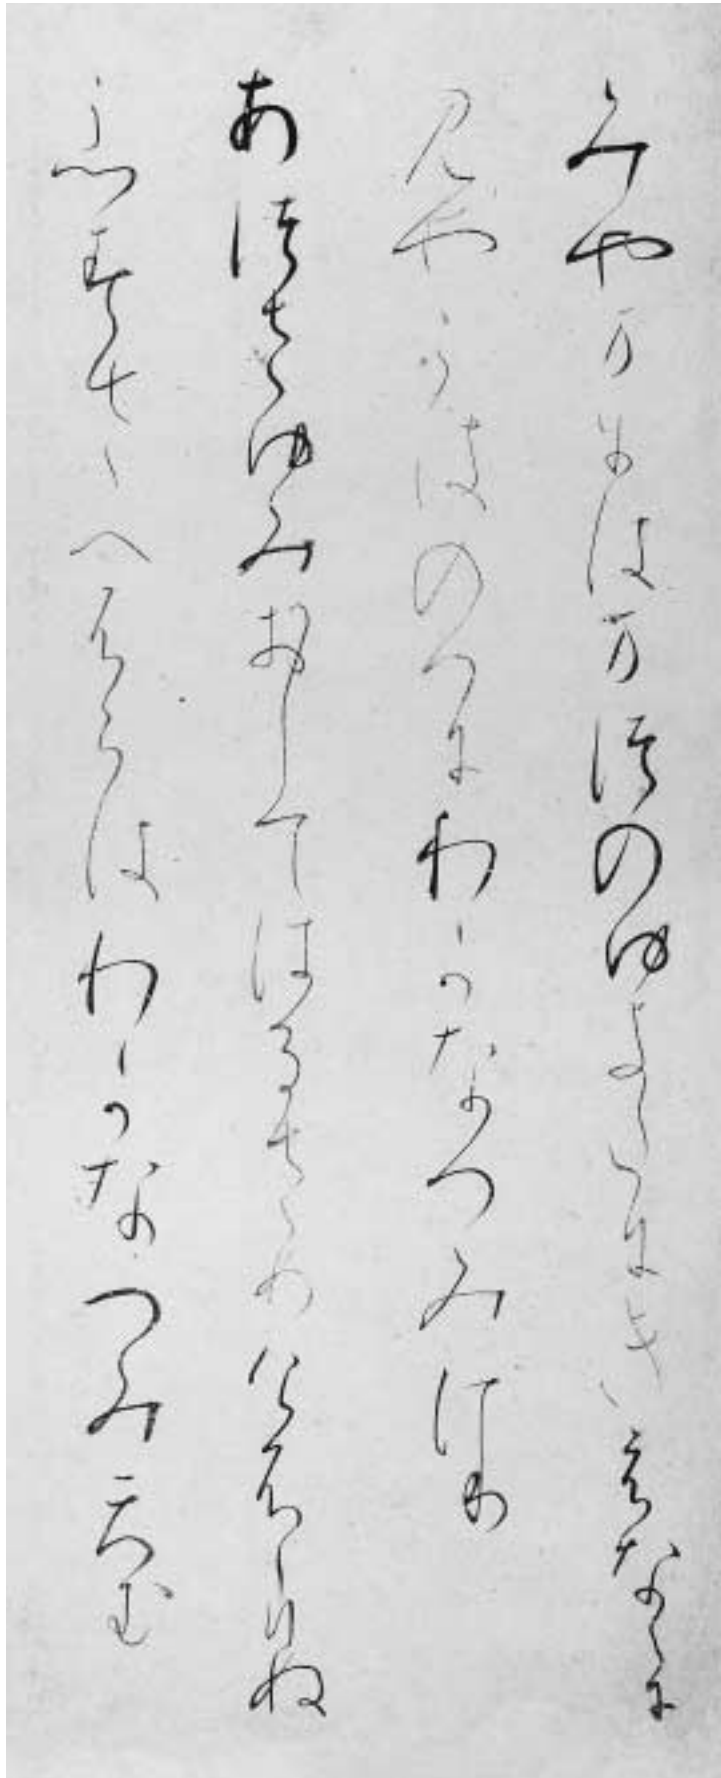 みやまにはまつのゆきたにきえなくに
みやこはのへにわかなつみけり
あつさゆみおしてはるさめけふゝりぬ
あすさへふらはわかなつみてむ